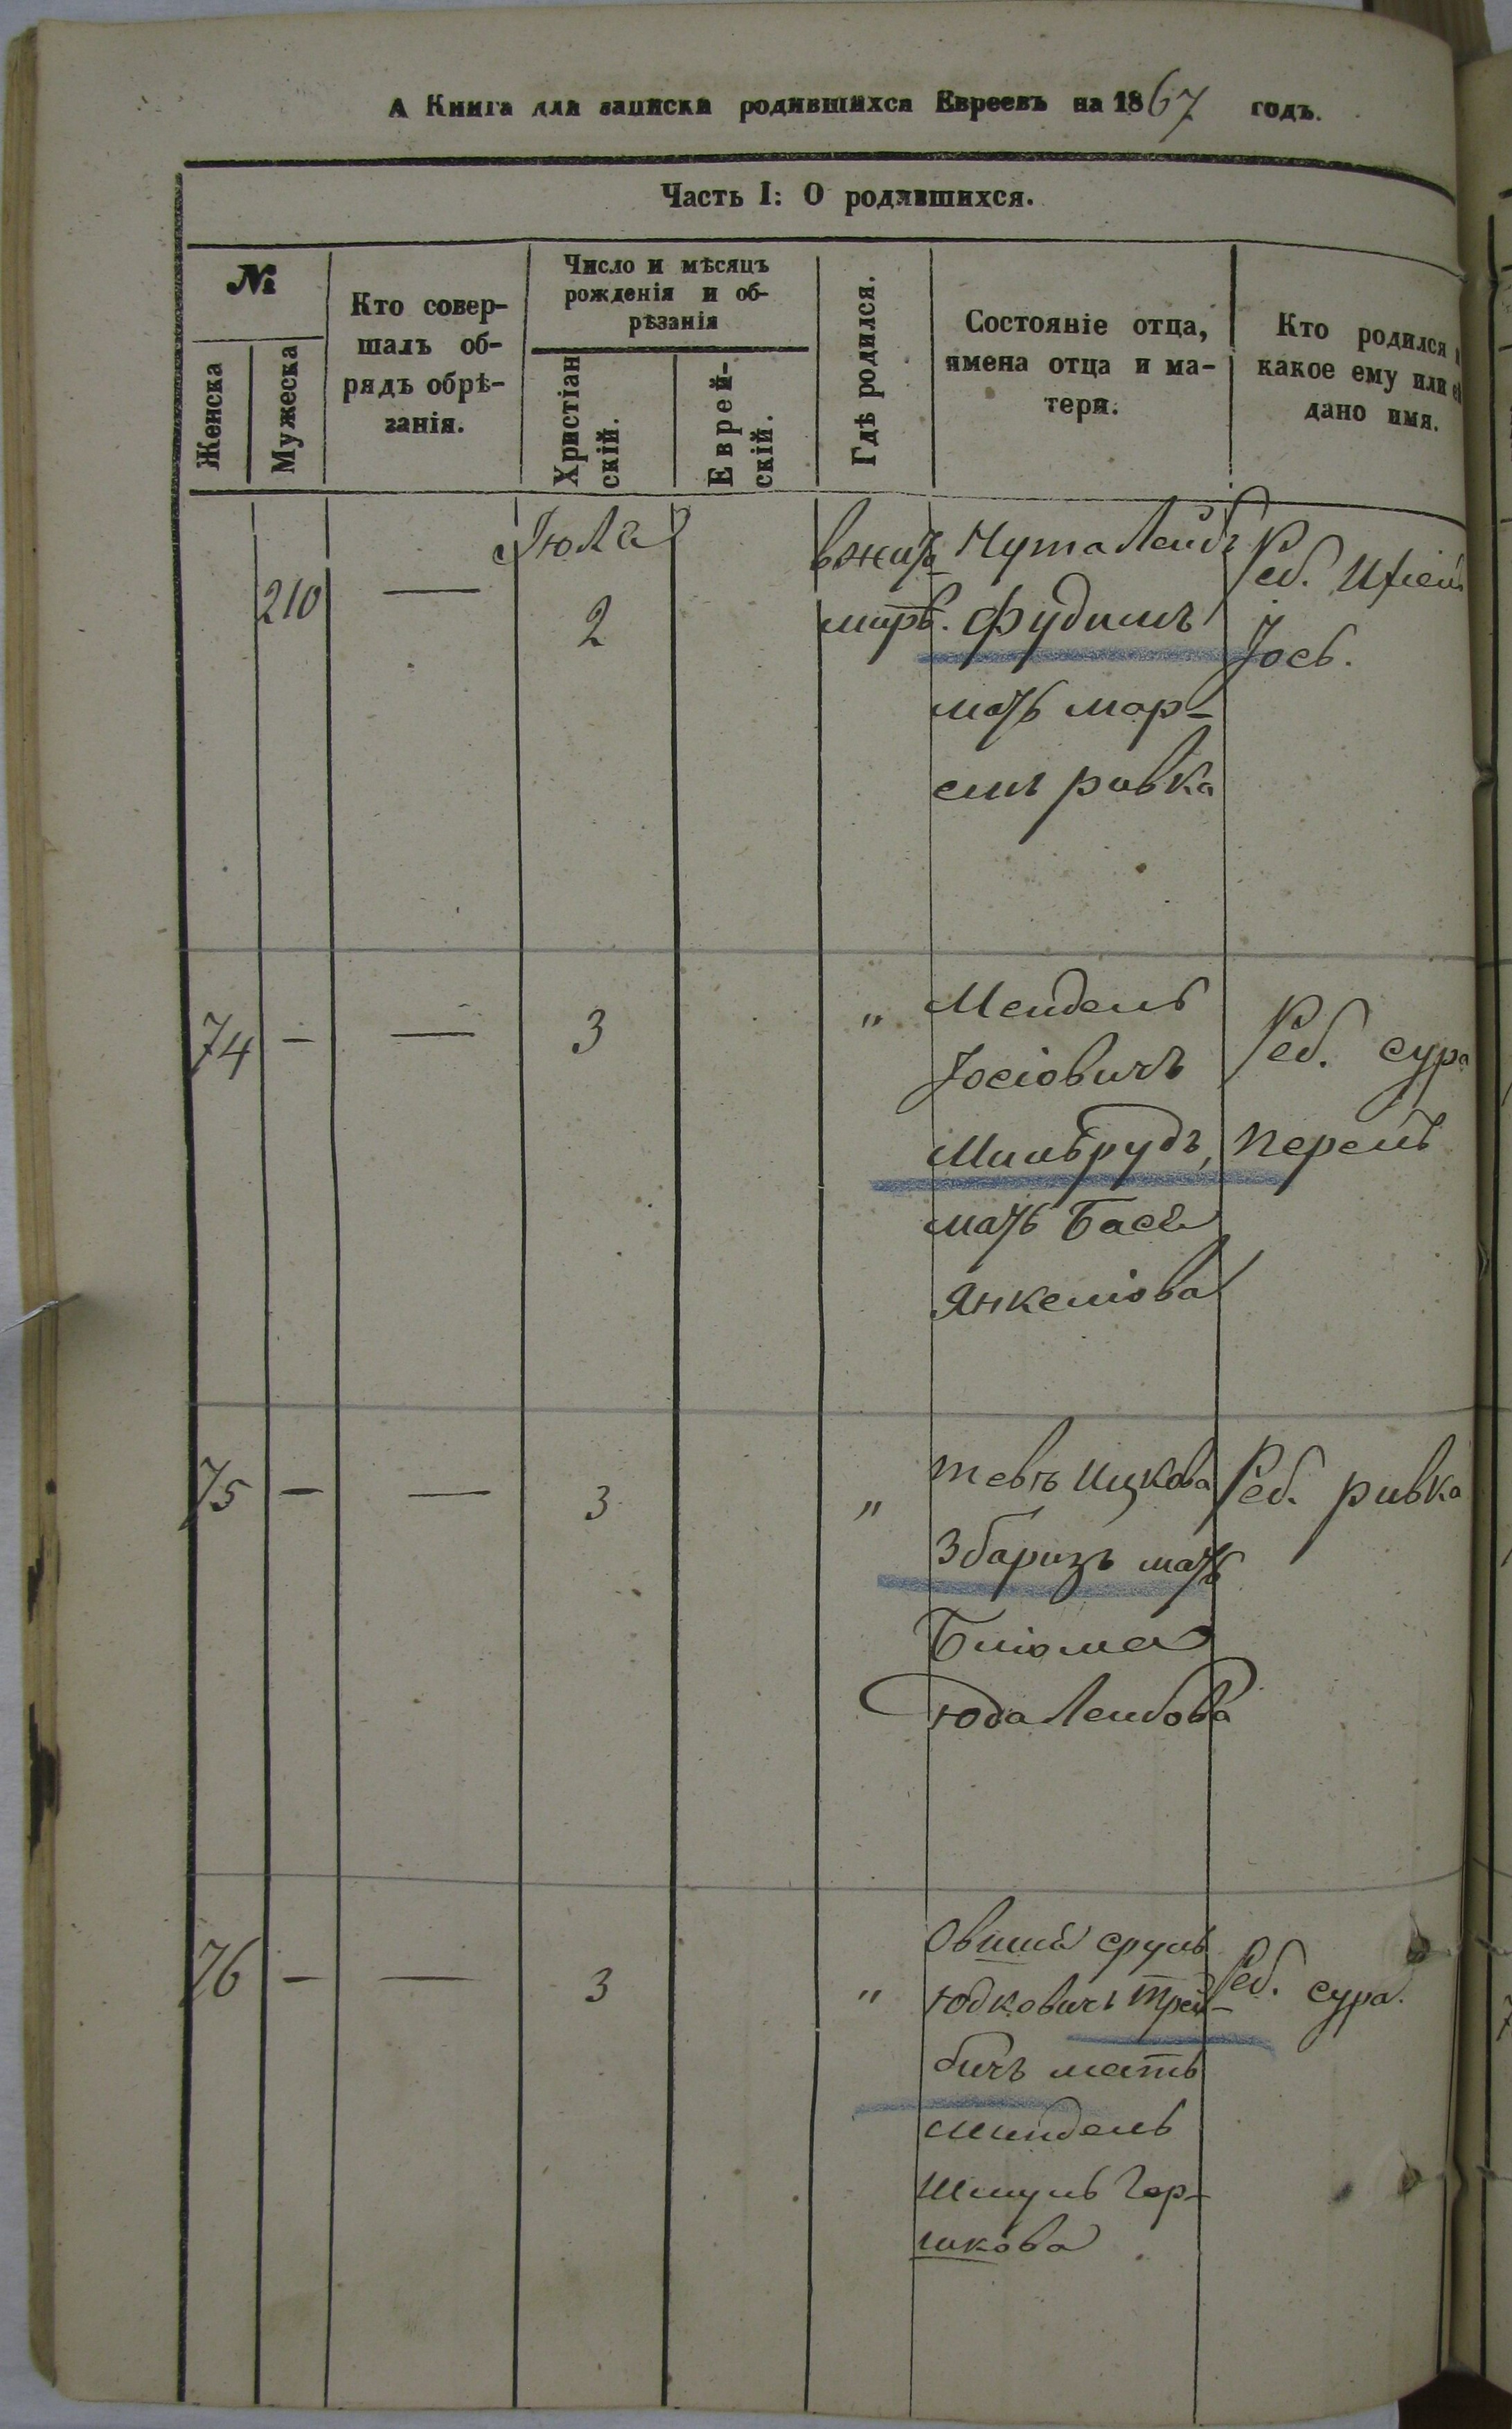 А Книга для записки родившихся Евреевъ на 1867 годъ.
Часть I: О родившихся.
№
Женска
Мужеска
Кто совер-
шалъ об-
рядъ обрѣ-
занія.
Число и мѣсяцъ
рожденія и об-
рѣзанія
Христіан
скій.
Еврей-
скій.
Гдѣ родился.
Состояніе отца,
имена отца и ма-
тери.
Кто родился
какое ему или
дано имя.
Іюла
210
—
2
вжит
мирѣ.
Нута Лейбъ
Фудимъ
мать мар-
ривка
Реб.
Іосъ.
74
—
—
3
"
Мендель
Іосіовичъ
Мильрудъ,
мать Бася
Янкеліова
Реб. сура
перель
75
—
—
3
"
тевъ Ицкова
Збаризъ мать
Блюма
юда Лейбова
Реб. ривка
76
—
—
3
"
Овшій сруль
Юдковичъ Трей-
бичъ мать
миндель
Шмуль Гер-
шкова
Реб. сура.